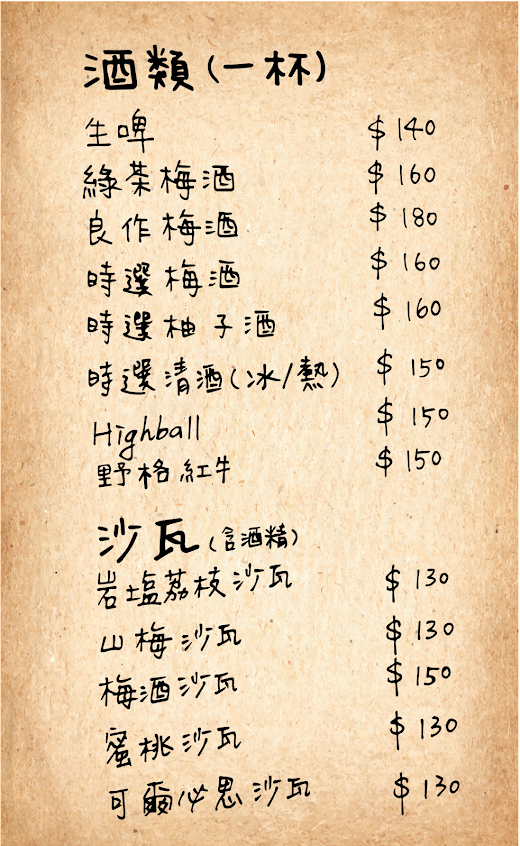 酒類(一杯)
生啤 $140
綠茶梅酒 $160
良作梅酒 $180
時選梅酒 $160
時選柚子酒 $160
時選清酒(冰/熱) $150
Highball $150
野格紅牛 $150
沙瓦(含酒精)
岩塩荔枝沙瓦 $130
山梅沙瓦 $130
梅酒沙瓦 $150
蜜桃沙瓦 $130
可爾必思沙瓦 $130